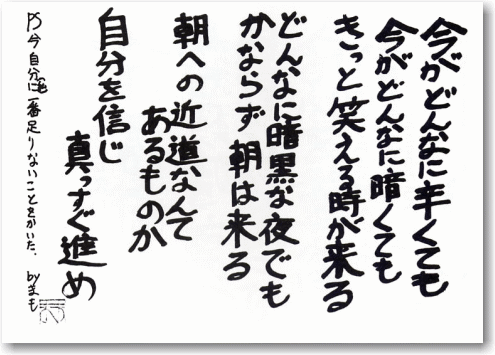 今がどんなに辛くても
今がどんなに暗くても
きっと笑える時が来る
どんなに暗黒な夜でも
かならず朝は来る
朝への近道なんて
あるものか
自分を信じ
真っすぐ進め
PS 今自分に一番足りないことをかいた.
byまも